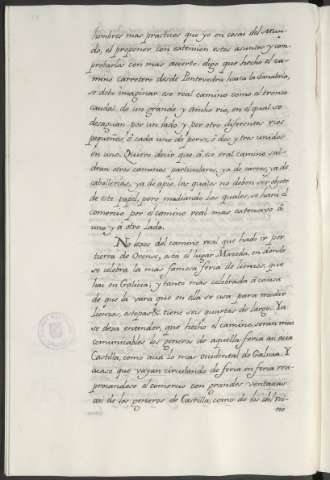 hombres mas practicos que yo en cosas del Mun-
do, el proponer con extension estos asuntos y com-
probarlas con mas acierto: digo que hecho el ca-
mino carretero desde Pontevedra hasta la Sanabria,
se debe imaginar ese real camino como el tronco
caudal de un grande y ancho rio, en el qual se
desaguan por un lado y por otro diferentes rios
pequeños, ò cada uno de porsi, ò dos y tres unidos
en uno. Quiero decir que à ese real camino sal-
dran otros caminos particulares, ya de carros, ya de
caballerias, ya de apie, los quales no deben ser objeto
de este papel, pero mediando los quales, se hará el
comercio por el camino real mas extensivo à
uno y à otro lado.
No lexos del camino real que hade ir por
tierra de Orense, está el lugar Mazeda, en donde
se celebra la mas famosa feria de lienzos, que
hai en Galicia; y tanto mas celebrada à causa
de que la vara que en ella se usa para medir
lienzos, estopas &c tiene seis quartas de largo. Ya
se dexa entender, que hecho el camino, seran mas
comunicables los generos de aquella feria asi acia
Castilla, como acia lo mas occidental de Galicia. Y
acaso que vayan circulando de feria en feria res-
pirandose el comercio con grandes ventajas
asi de los generos de Castilla, como de los del Rei-
no